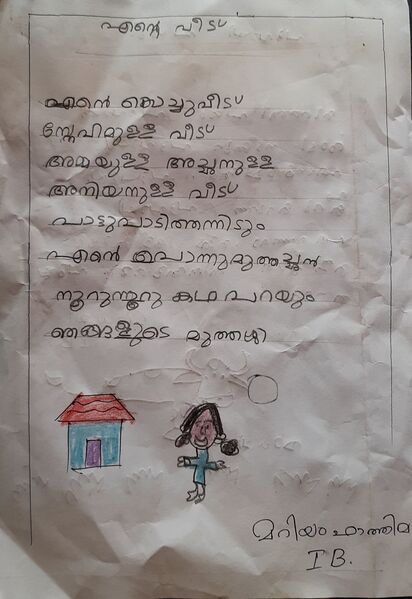 എന്റെ വീട്
എന്റെ കൊച്ചുവീട്
സ്നേഹമുള്ള വീട്
അമ്മയുള്ള അച്ഛനുള്ള
അനിയനുള്ള വീട്
പാട്ടുപാടിത്തന്നിടും
എന്റെ പൊന്നുമുത്തച്ഛൻ
നൂറുനൂറു കഥ പറയും
ഞങ്ങളുടെ മുത്തശ്ശി
മറിയം ഫാത്തിമ
I B.